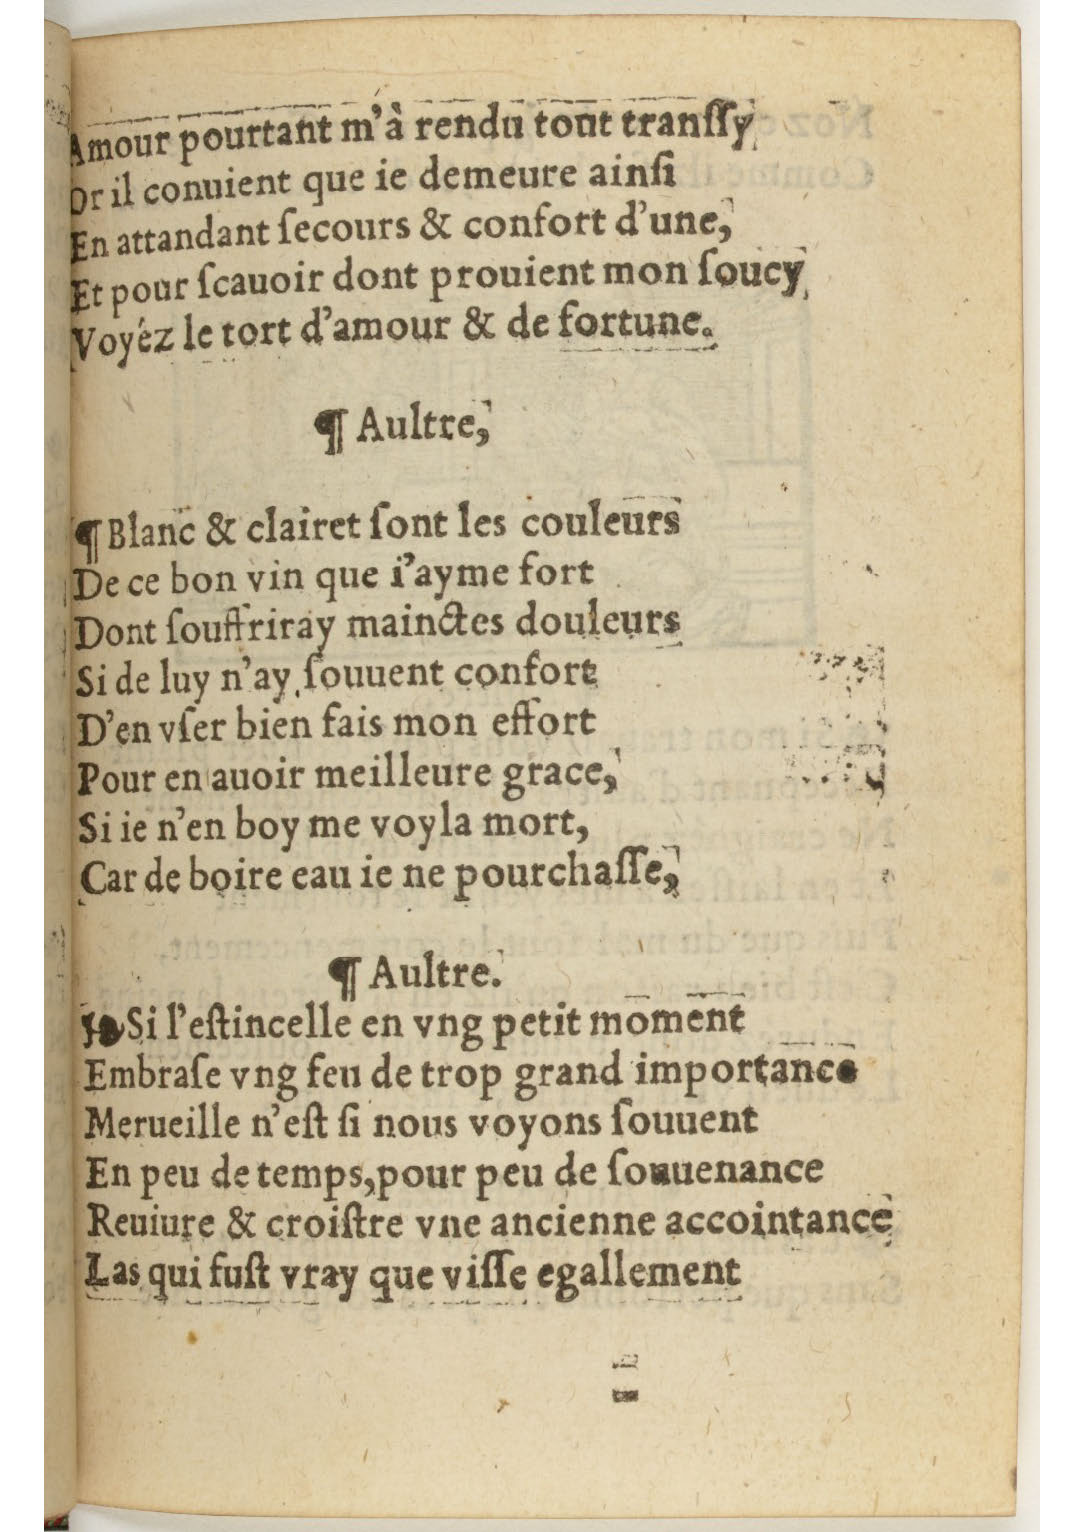 Amour pourtant m'à rendu tout tranſſy,
Or il conuient que ie demeure ainſi
En attandant ſecours & confort d'une,
Et pour ſcauoir dont prouient mon ſoucy,
Voyéz le tort d'amour & de fortune.
¶ Aultre,
¶ Blanc & clairet ſont les couleurs
De ce bon vin que i'ayme fort
Dont ſouffriray mainctes douleurs
Si de luy n'ay, ſouuent confort
D'en vſer bien fais mon effort
Pour en auoir meilleure grace,
Si ie n'en boy me voyla mort,
Car de boire eau ie ne pourchaſſe,
¶ Aultre.
Si l'eſtincelle en vng petit moment
Embraſe vng feu de trop grand importance
Merueille n'eſt ſi nous voyons ſouuent
En peu de temps, pour peu de ſouuenance
Reuiure & croiſtre vne ancienne accointance
Las qui fuſt vray que viſſe egallement